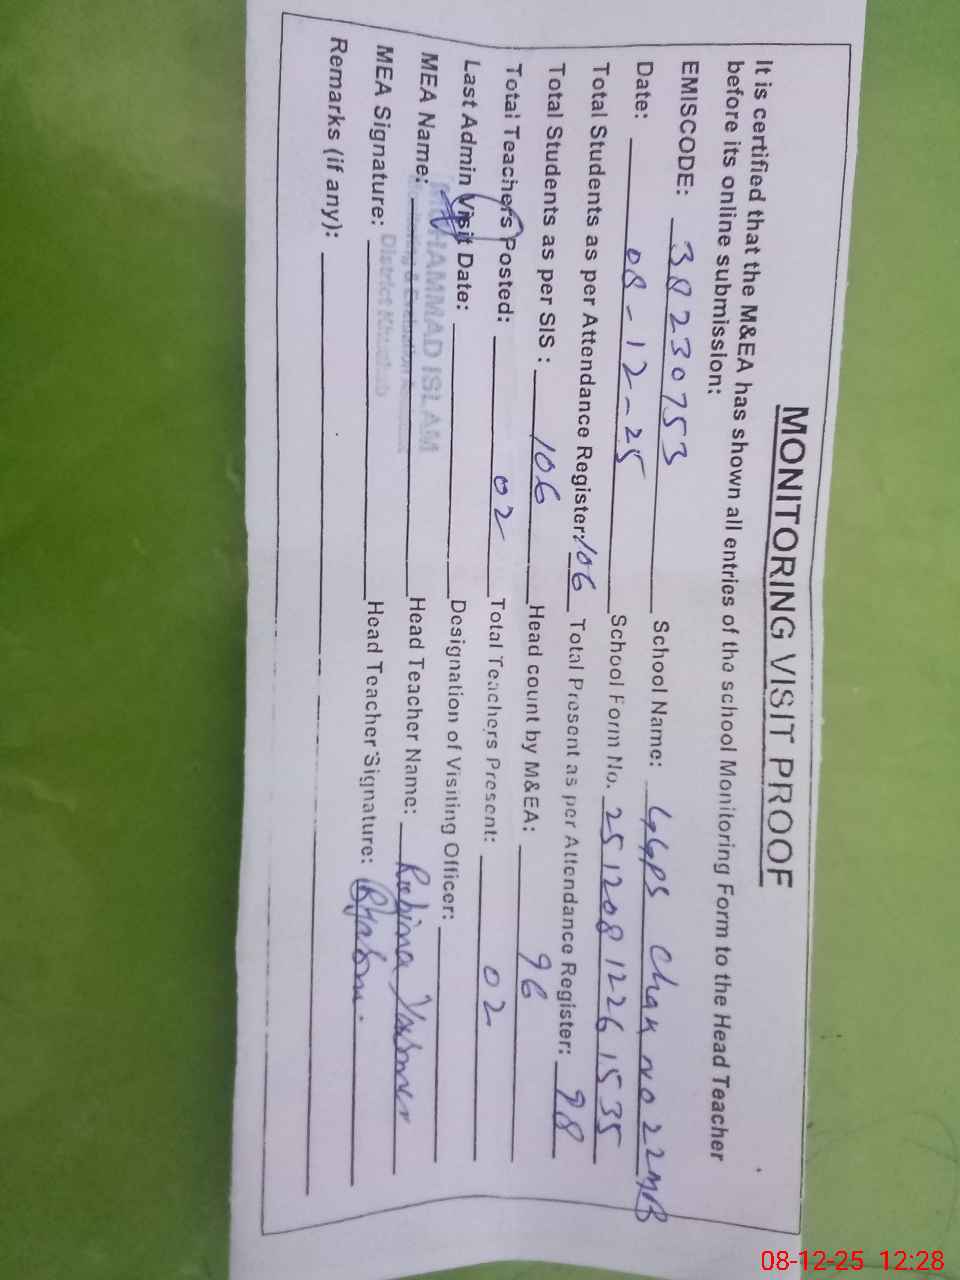 MONITORING VISIT PROOF
It is certified that the M&EA has shown all entries of the school Monitoring Form to the Head Teacher
before its online submission:
EMISCODE: 38230753 School Name: GGPS Chak no 22MB
Date: 08-12-25 School Form No. 25120812261535
Total Students as per Attendance Register: 106 Total Present as per Attendance Register: 98
Total Students as per SIS : 106 Head count by M&EA: 96
Total Teachers Posted: 02 Total Teachers Present: 02
Last Admin Visit Date: Designation of Visiting Officer:
MEA Name: MUHAMMAD ISLAM Head Teacher Name: Rubina Yasmeen
Monitoring & Evaluation Assistant
MEA Signature: District Khushab Head Teacher Signature:
Remarks (if any):
08-12-25 12:28